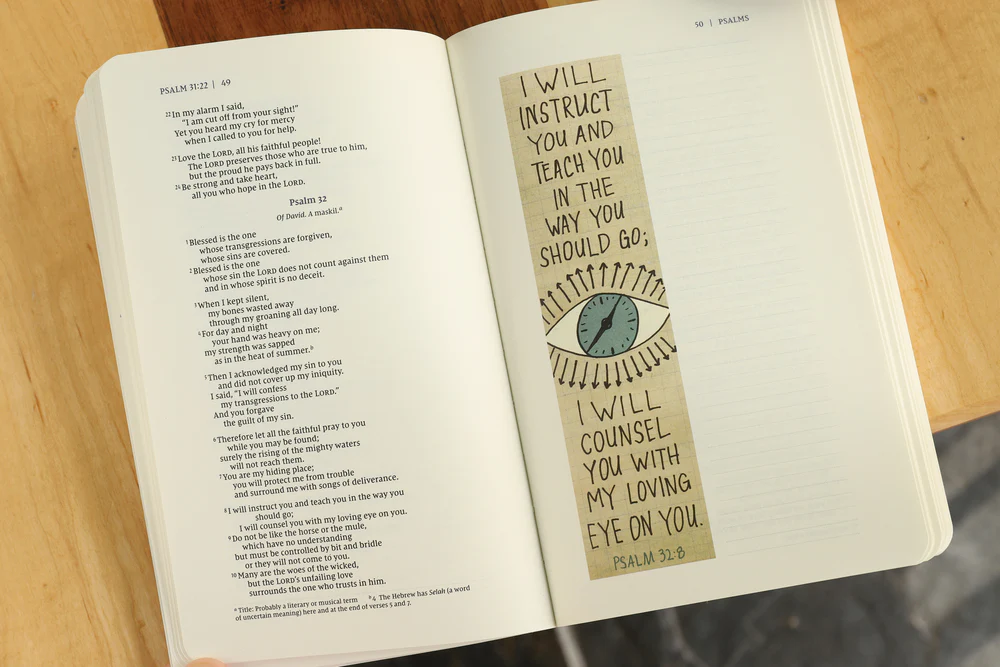 PSALM 31:22 | 49
22 In my alarm I said,
“I am cut off from your sight!”
Yet you heard my cry for mercy
when I called to you for help.
23 Love the LORD, all his faithful people!
The LORD preserves those who are true to him,
but the proud he pays back in full.
24 Be strong and take heart,
all you who hope in the LORD.
Psalm 32
Of David. A maskil.a
1 Blessed is the one
whose transgressions are forgiven,
whose sins are covered.
2 Blessed is the one
whose sin the LORD does not count against them
and in whose spirit is no deceit.
3 When I kept silent,
my bones wasted away
through my groaning all day long.
4 For day and night
your hand was heavy on me;
my strength was sapped
as in the heat of summer.b
5 Then I acknowledged my sin to you
and did not cover up my iniquity.
I said, “I will confess
my transgressions to the LORD.”
And you forgave
the guilt of my sin.
6 Therefore let all the faithful pray to you
while you may be found;
surely the rising of the mighty waters
will not reach them.
7 You are my hiding place;
you will protect me from trouble
and surround me with songs of deliverance.
8 I will instruct you and teach you in the way you
should go;
I will counsel you with my loving eye on you.
9 Do not be like the horse or the mule,
which have no understanding
but must be controlled by bit and bridle
or they will not come to you.
10 Many are the woes of the wicked,
but the LORD's unfailing love
surrounds the one who trusts in him.
a Title: Probably a literary or musical term b 4 The Hebrew has Selah (a word
of uncertain meaning) here and at the end of verses 5 and 7.
50 | PSALMS
I WILL
INSTRUCT
YOU AND
TEACH YOU
IN THE
WAY YOU
SHOULD GO;
I WILL
COUNSEL
YOU WITH
MY LOVING
EYE ON YOU.
PSALM 32:8